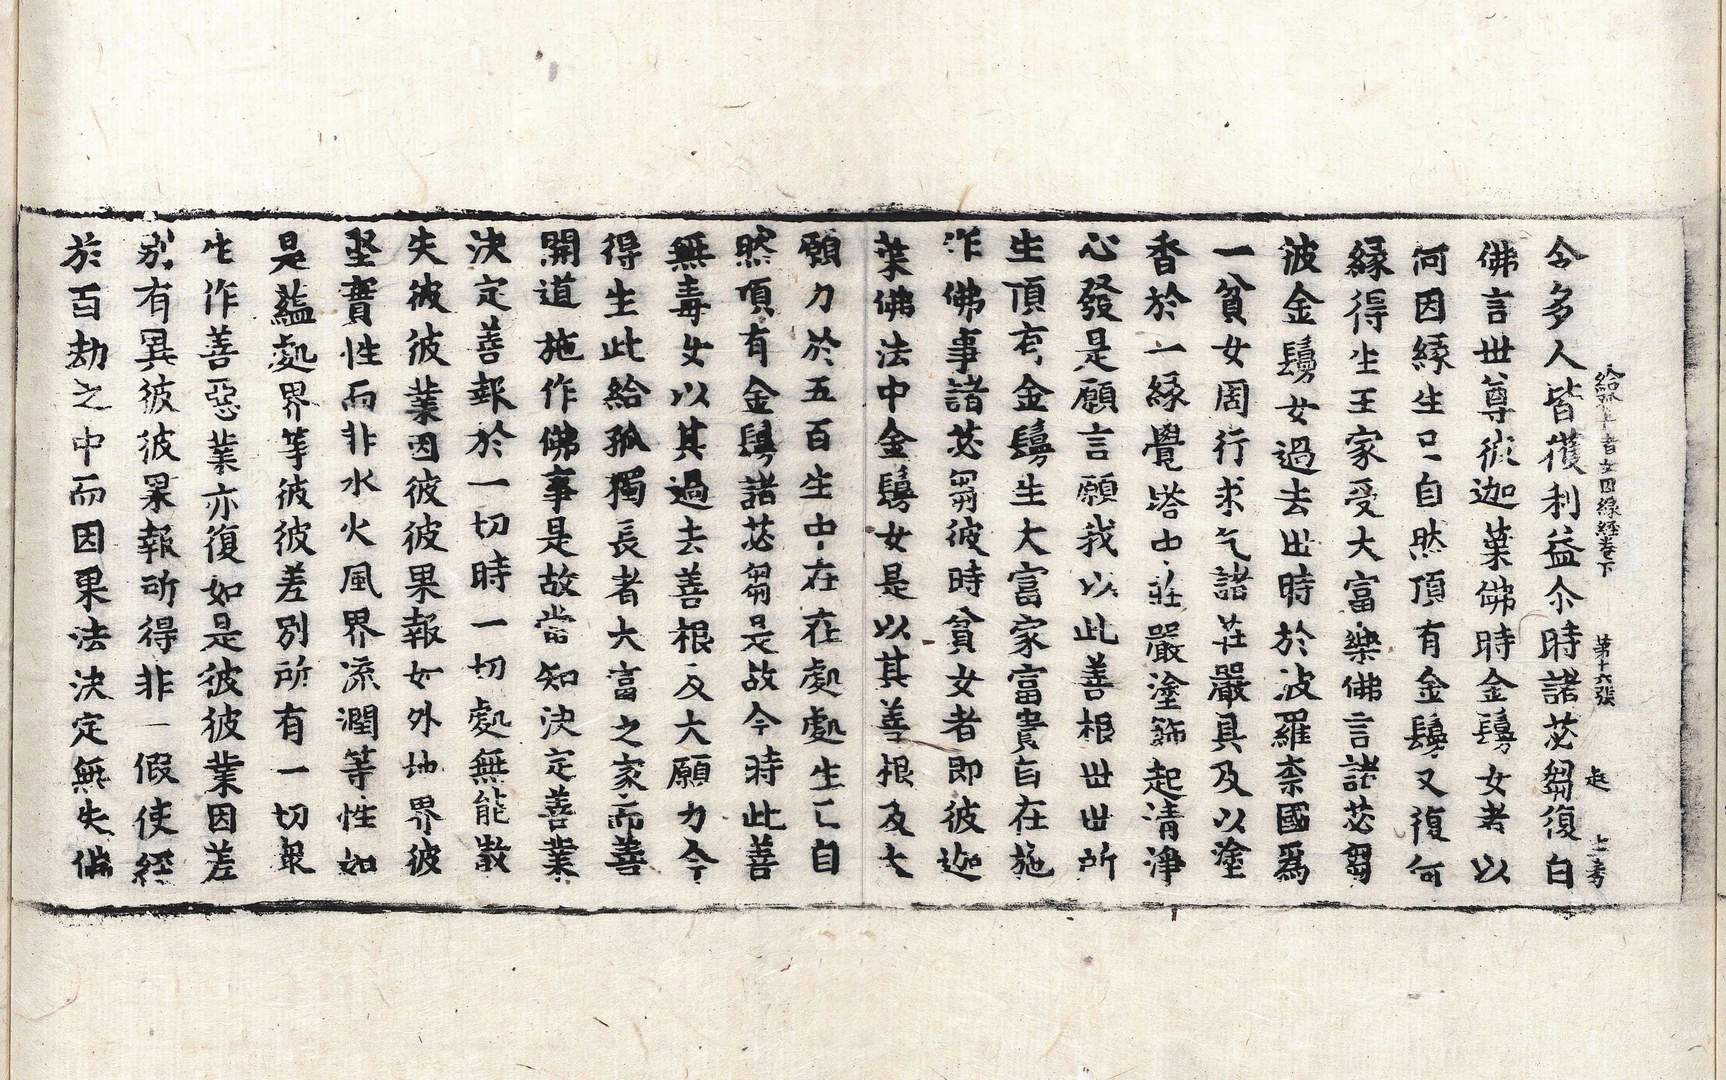 給孤長者女因縁經卷下 第十六張 起
令多人皆獲利益尒時諸苾芻復白
佛言世尊彼迦葉佛時金鬘女者以
何因縁生已自然頂有金鬘又復何
縁得生王家受大富樂佛言諸苾芻
彼金鬘女過去世時於波羅柰國爲
一貧女周行求乞諸莊嚴具及以塗
香於一縁覺塔中莊嚴塗飾起清淨
心發是願言願我以此善根世世所
生頂有金鬘生大富家富貴自在施
作佛事諸苾芻彼時貧女者即彼迦
葉佛法中金鬘女是以其善根及大
願力於五百生中在在處處生已自
然頂有金鬘諸苾芻是故今時此善
無毒女以其過去善根及大願力今
得生此給孤獨長者大富之家而善
開道施作佛事是故當知決定善業
決定善報於一切時一切處無能散
失彼彼業因彼彼果報如外地界彼
堅實性而非水火風界流潤等性如
是藴處界等彼彼差别所有一切衆
生作善惡業亦復如是彼彼業因差
别有異彼彼果報所得非一假使經
於百劫之中而因果法決定無失佛